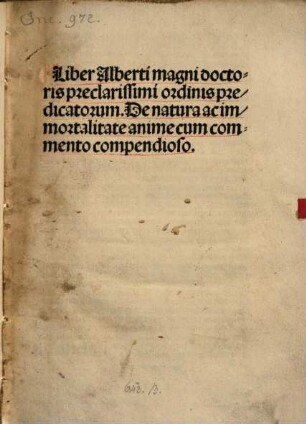 Inc. 972.
Liber Alberti magni docto-
ris preclarissimi ordinis pre/
dicatorum. De natura ac im/
mortalitate anime cum com-
mento compendioso.